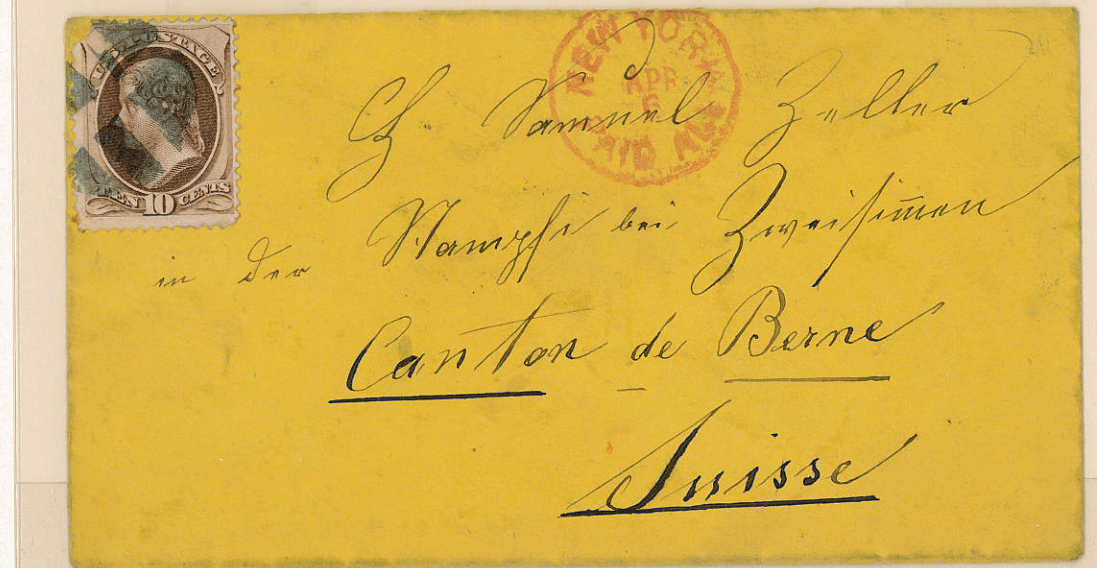 U.S. POSTAGE
TEN 10 CENTS
NEW YORK
APR
6
PAID ALL
Samuel Zeller
in der Stampfi bei Zweisimmen
Canton de Berne
Suisse